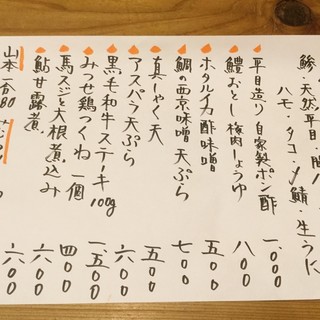 鯵・天然平目・
ハモ・タコ・〆鯖・生うに
平目造り 自家製ポン酢 一、〇〇〇
鱧おとし 梅肉しょうゆ 八〇〇
ホタルイカ酢味噌 五〇〇
鯛の西京味噌天ぷら 七〇〇
真しゃく天 五〇〇
アスパラ天ぷら 六〇〇
黒毛和牛ステーキ 100g 一、五〇〇
みつせ鶏つくね 一個 四〇〇
馬スジと大根煮込み 六〇〇
鮎甘露煮 六〇〇
山本